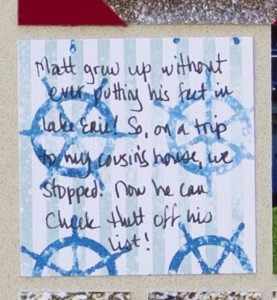 Matt grew up without
ever putting his feet in
Lake Erie! So, on a trip
to my cousin's house, we
stopped! Now he can
check that off his
list!